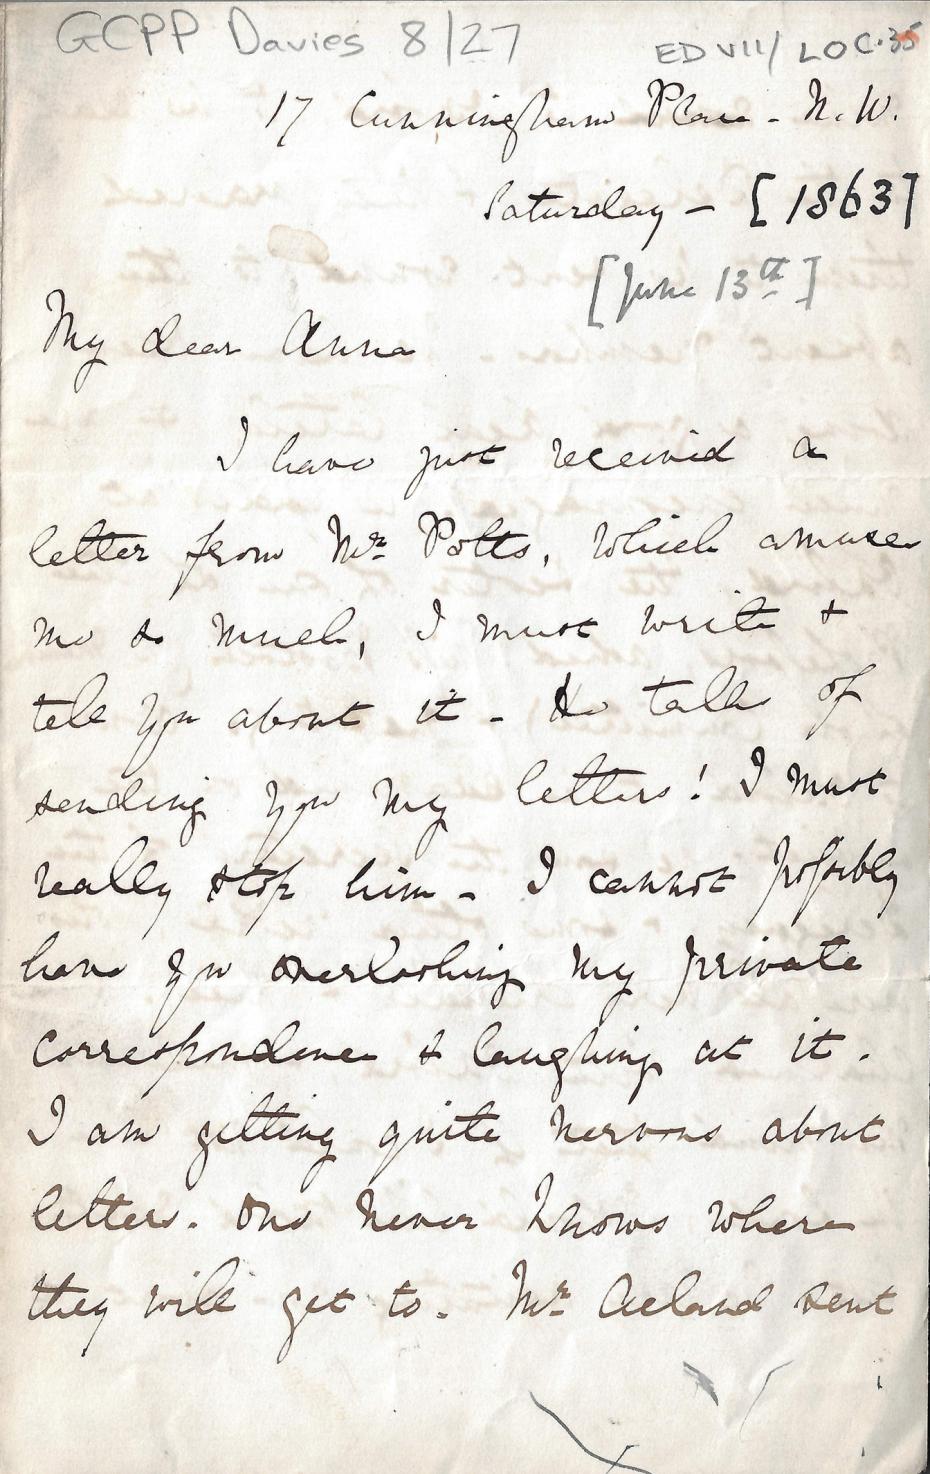 GCPP Davies 8/27
ED VII/ LOC.35
17 Cunningham Place - N. W.
Saturday - [1863]
[June 13th]
My dear Anna
I have just received a
letter from Mr Potts, which amuses
me so much, I must write &
tell you about it - He talks of
sending you my letters! I must
really stop him - I cannot possibly
have you overlooking my private
correspondence & laughing at it.
I am getting quite nervous about
letters. One never knows where
they will get to. Mr Acland sent